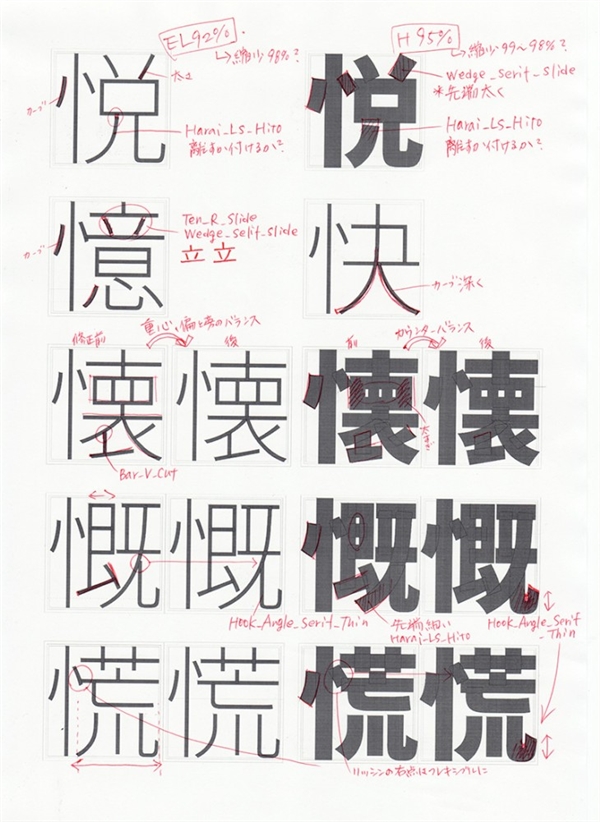 EL92%.
→縮少98%?
H95%
→縮少99〜98%?
悦
太さ
カーブ
Harai_LS_Hito
離すか付けるか?
悦
Wedge_Serif_Slide
*先端太く
Harai_LS_Hito
離すか付けるか?
憶
カーブ
Ten_R_Slide
Wedge_Serif_Slide
立立
快
カーブ深く
重心、偏と旁のバランス
修正前
後
懐
懐
Bar_V_Cut
カウンターバランス
前
後
懐
懐
太すぎ
慨
慨
Hook_Angle_Serif_Thin
慨
慨
先端細い
Harai_LS_Hito
Hook_Angle_Serif
_Thin
慌
慌
慌
慌
リッシンの右点はフレキシブルに